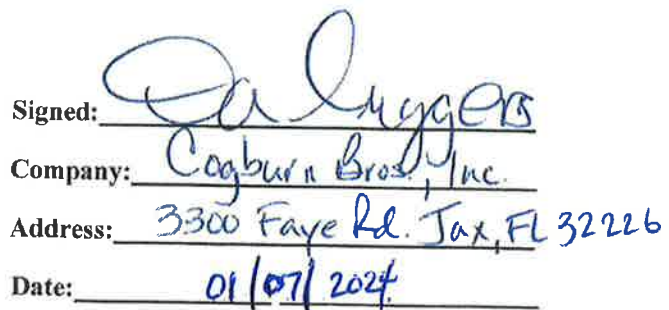 Signed:
Company: Cogburn Bros., Inc.
Address: 3300 Faye Rd. Jax, FL 32226
Date: 01/07/2024